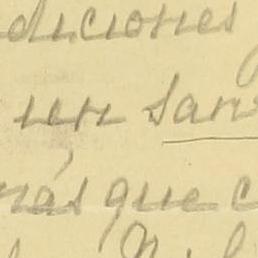 diciones
un san
más que c